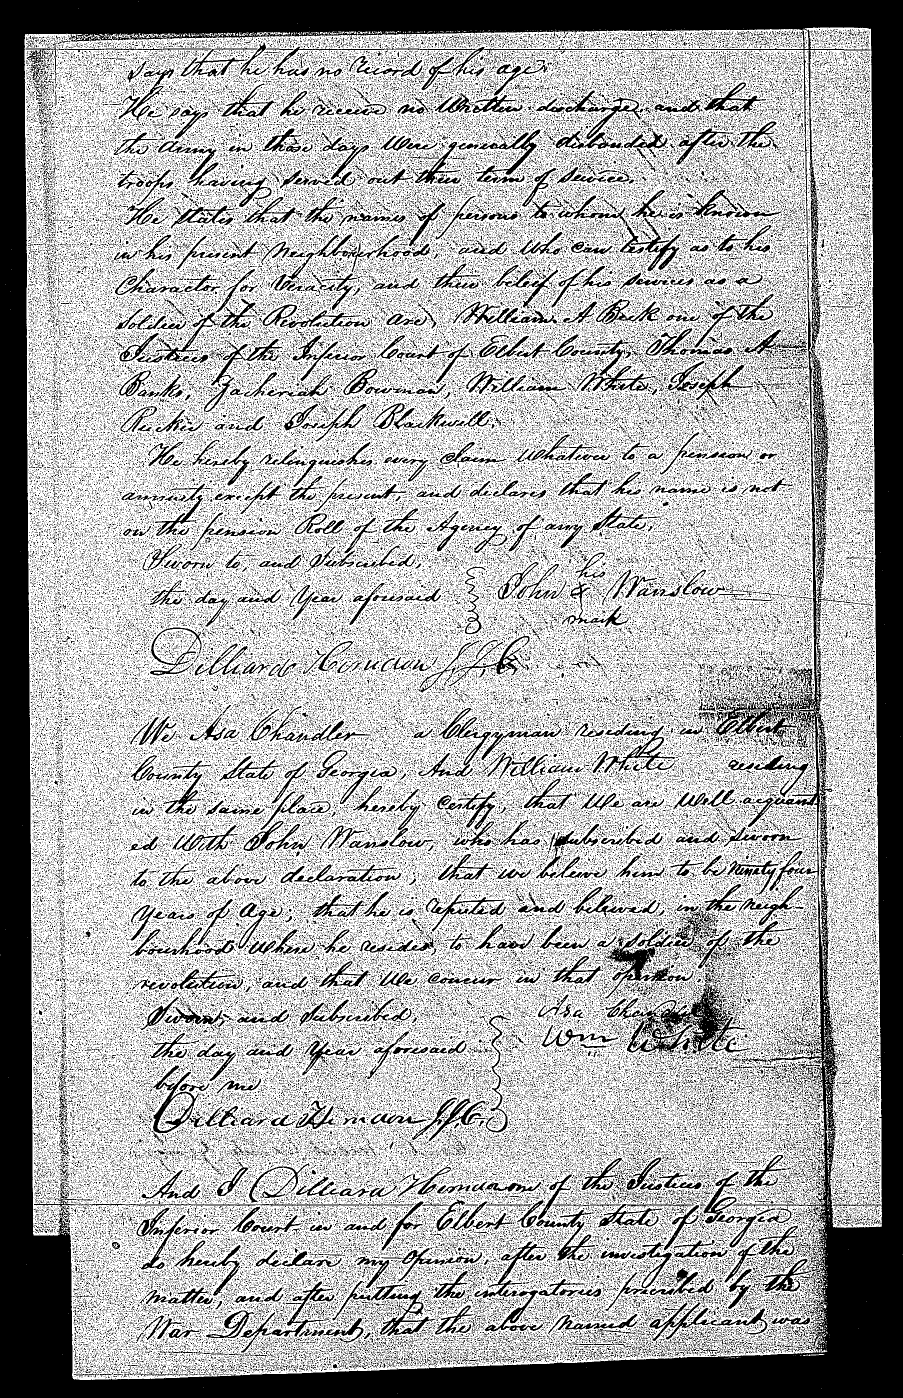 says that he has no record of his age.
He says that he receive no Written discharge, and that
the army in those days Were generally disbanded after the
troops having served out their term of service.
He states that the names of persons to whom he is Known
in his present Neighbourhood, and Who can testify as to his
Character for Veracity, and their beleif of his services as a
Soldier of the Revolution are, William A Beck one of the
Justices of the Inferior Court of Elbert County, Thomas A
Banks, Zacheriah Bowman, William White, Joseph
Ruckir and Joseph Blackwell.
He hereby relinquishes every Claim Whatever to a pension or
annuity except the present and declares that his name is not
on the pension Roll of the Agency of any State,
Sworn to, and Subscribed,
the day and Year aforesaid
his
John Wanslow
mark
Dilliard Herndon J.I.C.
We Asa Chandler a Clergyman residing in Elbert
County State of Georgia, And William White residing
in the same place, hereby certify, that We are Well acquaint
ed With John Wanslow, who has subscribed and sworn
to the above declaration, that we believe him to be Ninety four
Years of Age, that he is reputed and beleived, in the neigh-
bourhood Where he resides, to have been a soldier of the
revolution, and that We concur in that opinion
Sworn, and Subscribed,
the day and Year aforesaid
before me
Asa Chandler
Wm White
Dilliard Herndon J.I.C.
And I Dilliard Herndon one of the Justices of the
Inferior Court in and for Elbert County State of Georgia
do hereby declare my Opinion, after the investigation of the
matter, and after putting the interogatories prescribed by the
War Department, that the above named applicant was